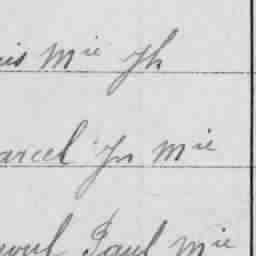 is Mie Jh
arcel Jn Mie
Paul Mie